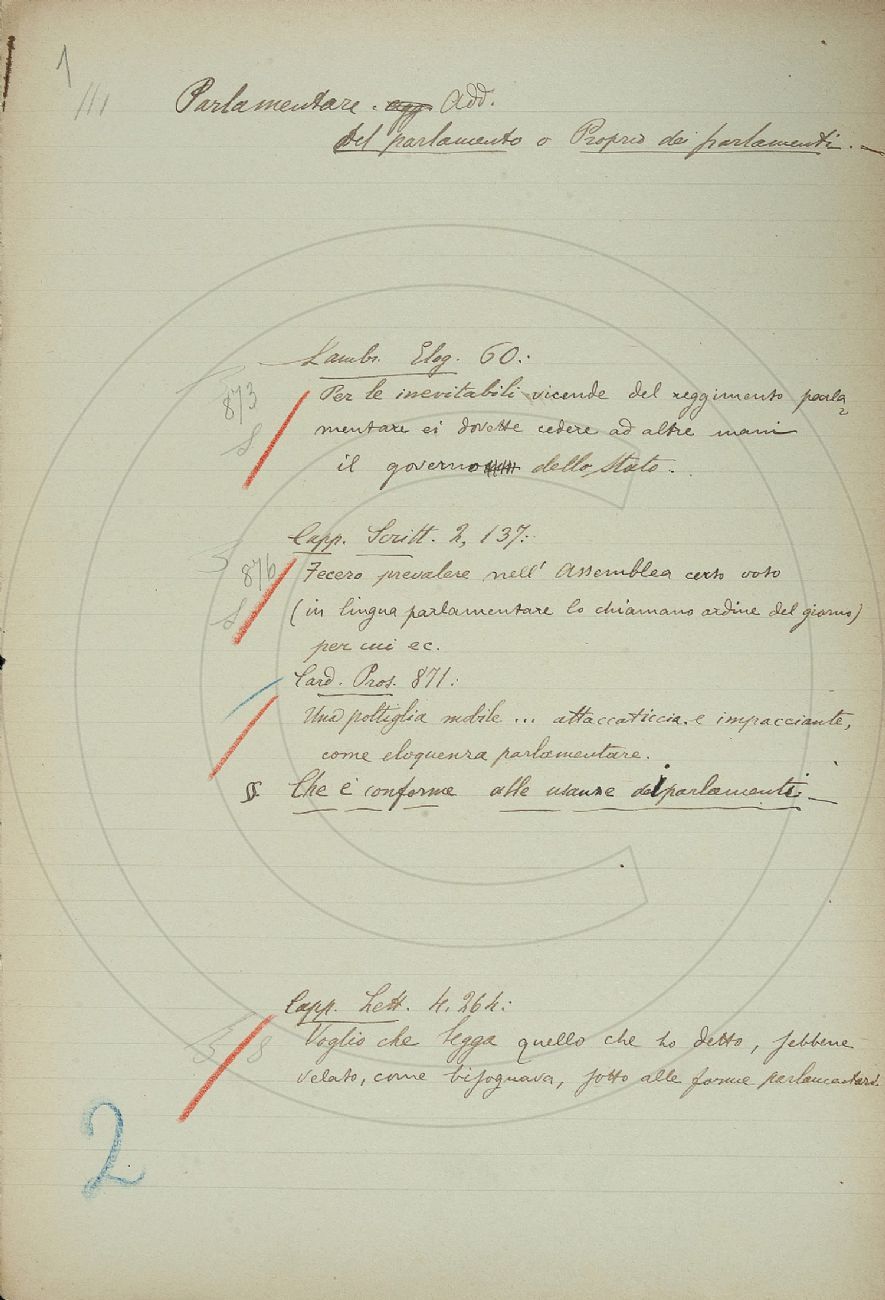 1
III
Parlamentare. agg Add.
Del parlamento o Proprio dei parlamenti. —
Lambr. Elog. 60.:
873
Per le inevitabili vicende del reggimento parla=
S
mentare ei dovette cedere ad altre mani
il governo dello Stato.
Capp. Scritt. 2, 137:
876
Fecero prevalere nell' Assemblea certo voto
S
(in lingua parlamentare lo chiamano ordine del giorno)
per cui ec.
Card. Pros. 871:
Una poltiglia mobile ... attaccaticcia e impacciante,
come eloquenza parlamentare.
§. Che è conforme alle usanze dei parlamenti. —
Capp. Lett. 4. 264:
Voglio che legga quello che ho detto, sebbene
velato, come bisognava, sotto alle forme parlamentari.
2